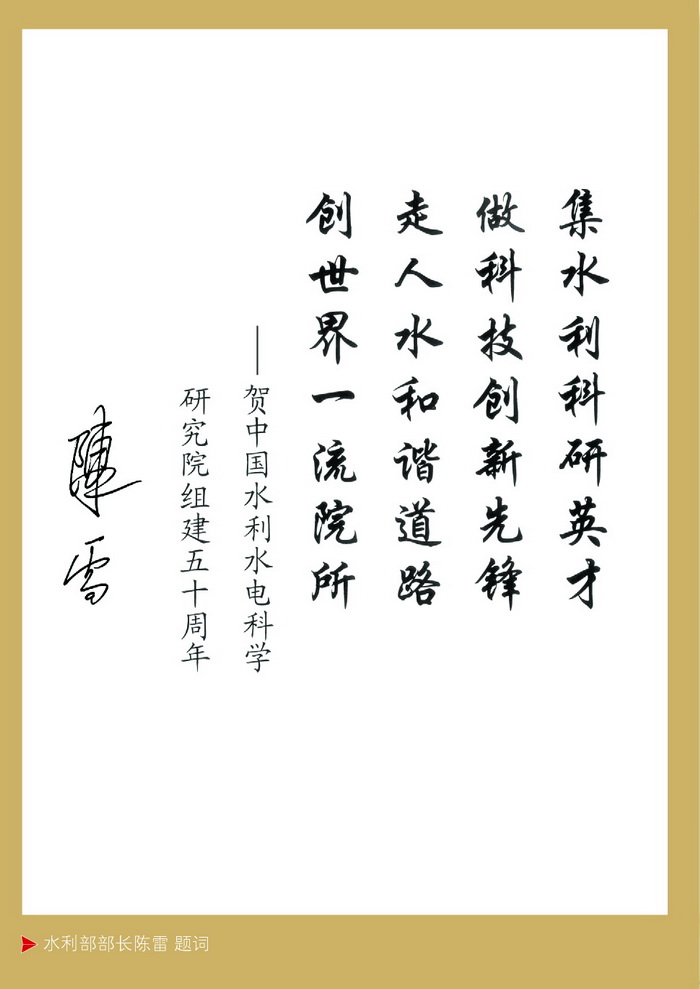 集水利科研英才
做科技创新先锋
走人水和谐道路
创世界一流院所
——贺中国水利水电科学
研究院组建五十周年
陳雷
水利部部长陈雷 题词